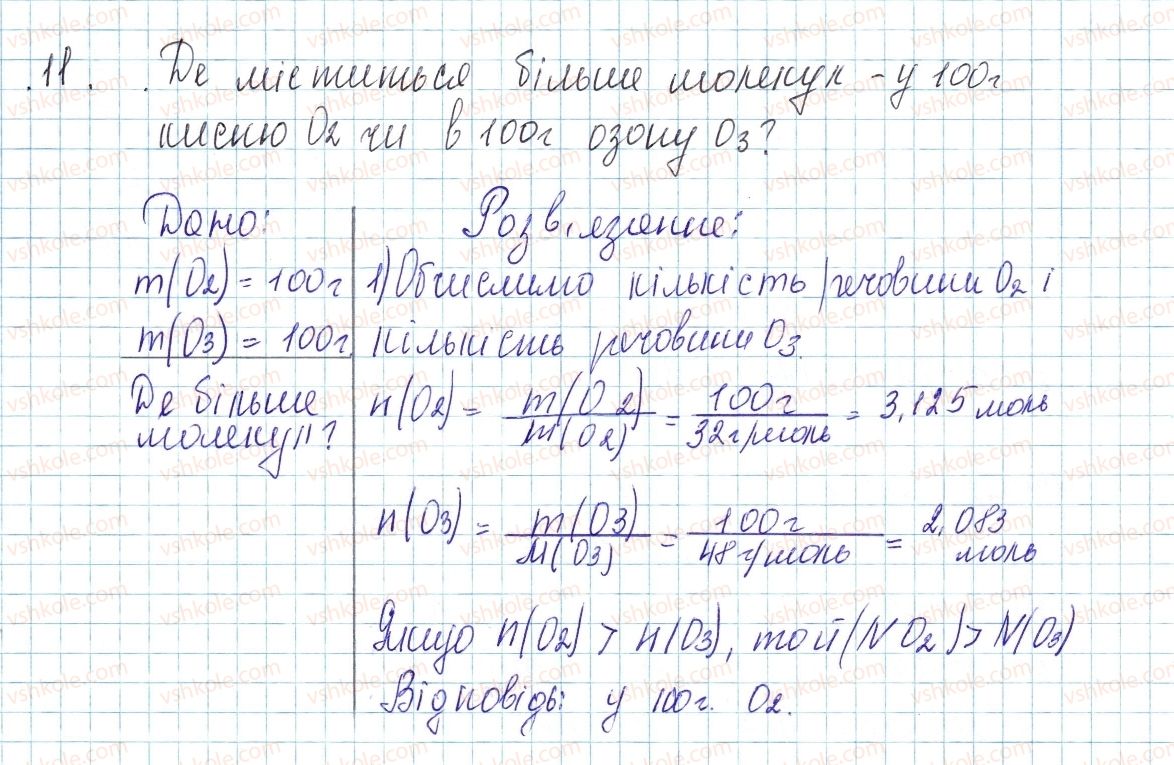 11. Де міститься більше молекул - у 100г
кисню O2 чи в 100г озону O3?
Дано:
m(O2) = 100г
m(O3) = 100г
Де більше
молекул?
Розв'язання:
1) Обчислимо кількість речовини O2 і
кількість речовини O3.
n(O2) = m(O2) / m(O2) = 100г / 32г/моль = 3,125 моль
n(O3) = m(O3) / M(O3) = 100г / 48г/моль = 2,083 моль
Якщо n(O2) > n(O3), то й (N O2) > N(O3)
Відповідь: у 100г. O2.